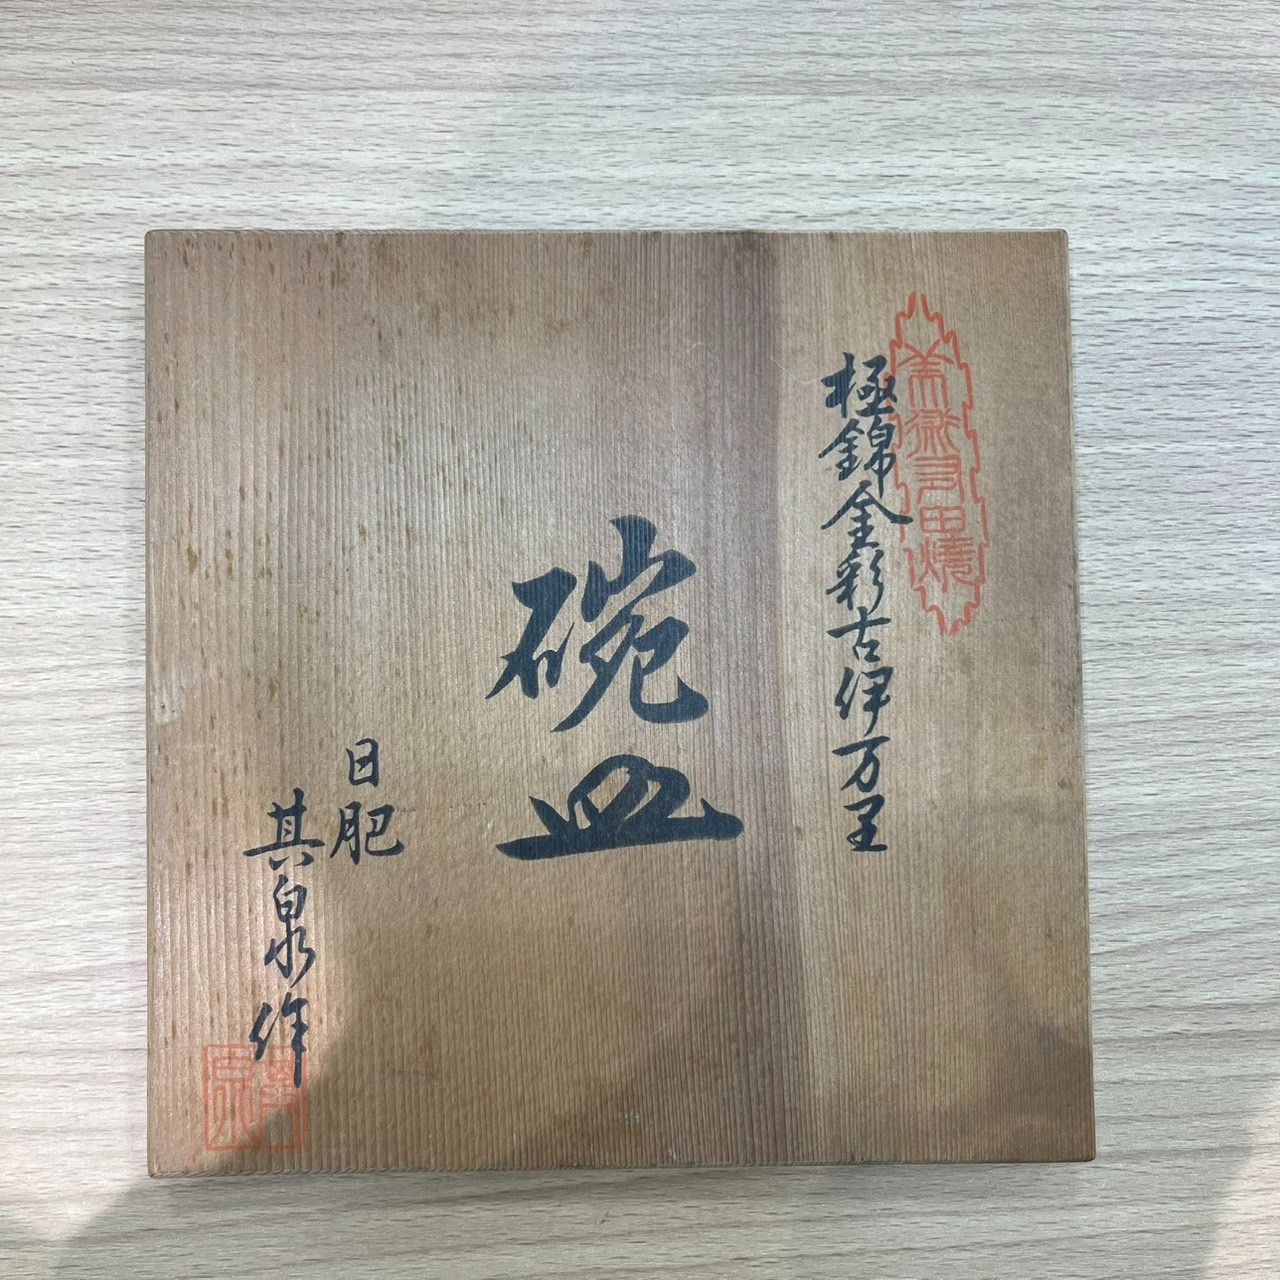 美術有田焼
極錦金彩古伊万里
碗皿
日肥
其泉作